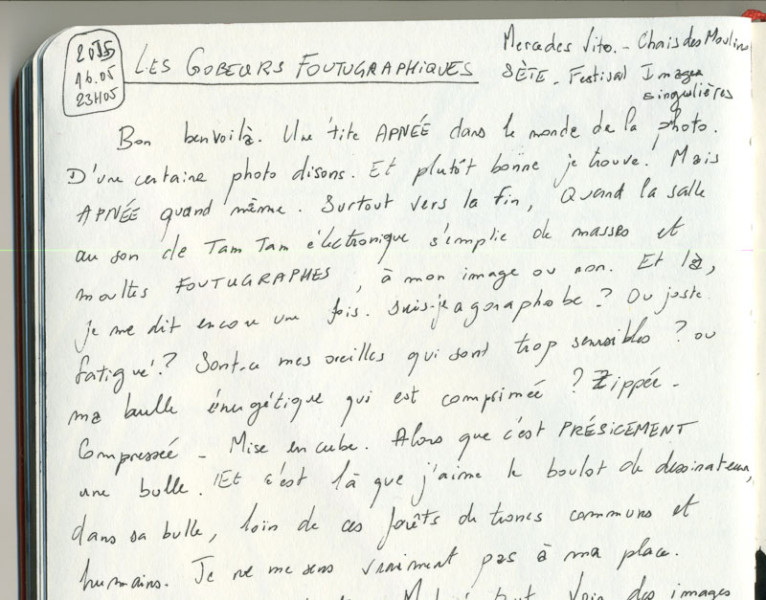 2015
16.05
23H05
LES GOBEURS FOUTUGRAPHIQUES
Mercedes Vito. - Chais des Moulins
SÈTE - Festival Images
singulières
Bon ben voilà. Une 'tite APNÉE dans le monde de la photo.
D'une certaine photo disons. Et plutôt bonne je trouve. Mais
APNÉE quand même. Surtout vers la fin, Quand la salle
au son de Tam Tam électronique s'emplie de masses et
moultes FOUTUGRAPHES, à mon image ou non. Et là,
je me dit encore une fois. Suis-je agoraphobe ? Ou juste
fatigué ? Sont-ce mes oreilles qui sont trop sensibles ? ou
ma bulle énergétique qui est comprimée ? Zippée -
Compressée - Mise en cube. Alors que c'est PRÉSICEMENT
une bulle. Et c'est là que j'aime le boulot de dessinateur,
dans sa bulle, loin de ces forêts de troncs communs et
humains. Je ne me sens vraiment pas à ma place.
tout voir des images